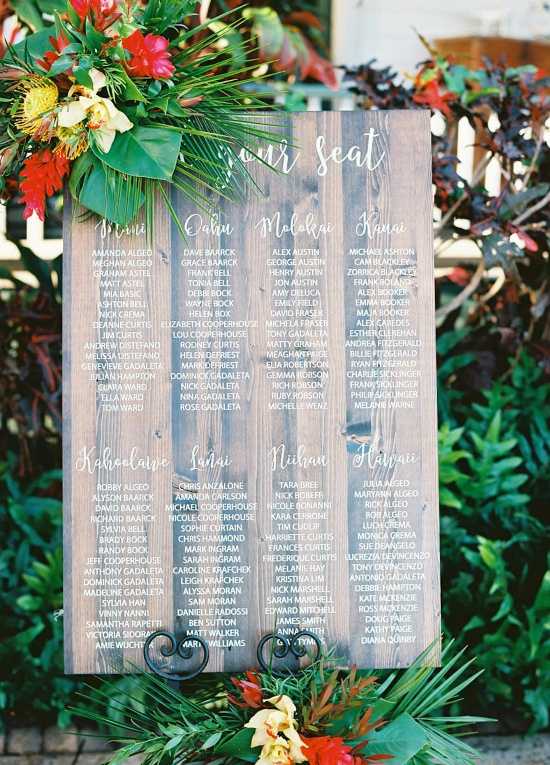 your seat
Maui
AMANDA ALGEO
MEGHAN ALGEO
GRAHAM ASTEL
MATT ASTEL
MIA BASIC
ASHTON BELL
NICK CREMA
DEANNE CURTIS
JIM CURTIS
ANDREW DISTEFANO
MELISSA DISTEFANO
GENEVIEVE GADALETA
JULIAN HAMPTON
CLARA WARD
ELLA WARD
TOM WARD
Oahu
DAVE BAARCK
GRACE BAARCK
FRANK BELL
TONIA BELL
DEBBIE BOCK
WAYNE BOCK
HELEN BOX
ELIZABETH COOPERHOUSE
LOU COOPERHOUSE
RODNEY CURTIS
HELEN DEFRIEST
MARK DEFRIEST
DOMINICK GADALETA
NICK GADALETA
NINA GADALETA
ROSE GADALETA
Molokai
ALEX AUSTIN
GEORGE AUSTIN
HENRY AUSTIN
JON AUSTIN
AMY DELICA
EMILY FIELD
DAVID FRASER
MICHELA FRASER
TONY GADALETA
MATTY GRAHAM
MEAGHAN PAIGE
ELIA ROBERTSON
GEMMA ROBSON
RICH ROBSON
RUBY ROBSON
MICHELLE WENZ
Kauai
MICHAEL ASHTON
CAM BLACKLEY
ZORRICA BLACKLEY
FRANK BOLAND
ALEX BOOKER
EMMA BOOKER
MAJA BOOKER
ALEX CAREDES
ESTHER CLEREHAN
ANDREA FITZGERALD
BILLIE FITZGERALD
RYAN FITZGERALD
CHARLIE SICKLINGER
FRANK SICKLINGER
PHILIP SICKLINGER
MELANIE WARNE
Kahoolawe
ROBBY ALGEO
ALYSON BAARCK
DAVID BAARCK
RICHARD BAARCK
SYLVIA BELL
BRADY BOCK
RANDY BOCK
JEFF COOPERHOUSE
ANTHONY GADALETA
DOMINICK GADALETA
MADELINE GADALETA
SYLVIA HAN
VINNY NANNI
SAMANTHA RAPETTI
VICTORIA SIDORA
AMIE WUCHTER
Lanai
CHRIS ANZALONE
AMANDA CARLSON
MICHAEL COOPERHOUSE
NICOLE COOPERHOUSE
SOPHIE CURTAIN
CHRIS HAMMOND
MARK INGRAM
SARAH INGRAM
CAROLINE KRAFCHEK
LEIGH KRAFCHEK
ALYSSA MORAN
SAM MORAN
DANIELLE RADOSSI
BEN SUTTON
MATT WALKER
WILLIAMS
Niihau
TARA BREE
NICK BOBEFF
NICOLE BONANNI
KARA CERRONE
TIM CUDLIP
HARRIETTE CURTIS
FRANCES CURTIS
FREDERIQUE CURTIS
MELANIE HAY
KRISTINA LIM
NICK MARSHELL
SARAH MARSHELL
EDWARD MITCHELL
JAMES SMITH
ANNA SMITH
Hawaii
JULIA ALGEO
MARYANN ALGEO
RICK ALGEO
ROB ALGEO
LUCH CREMA
MONICA CREMA
SUE DEANGELO
LUCREZIA DEVINCENZO
TONY DEVINCENZO
ANTONIO GADALETA
DEBBIE HAMPTON
KATE MCKENZIE
ROSS MCKENZIE
DOUG PAIGE
KATHY PAIGE
DIANA QUINBY